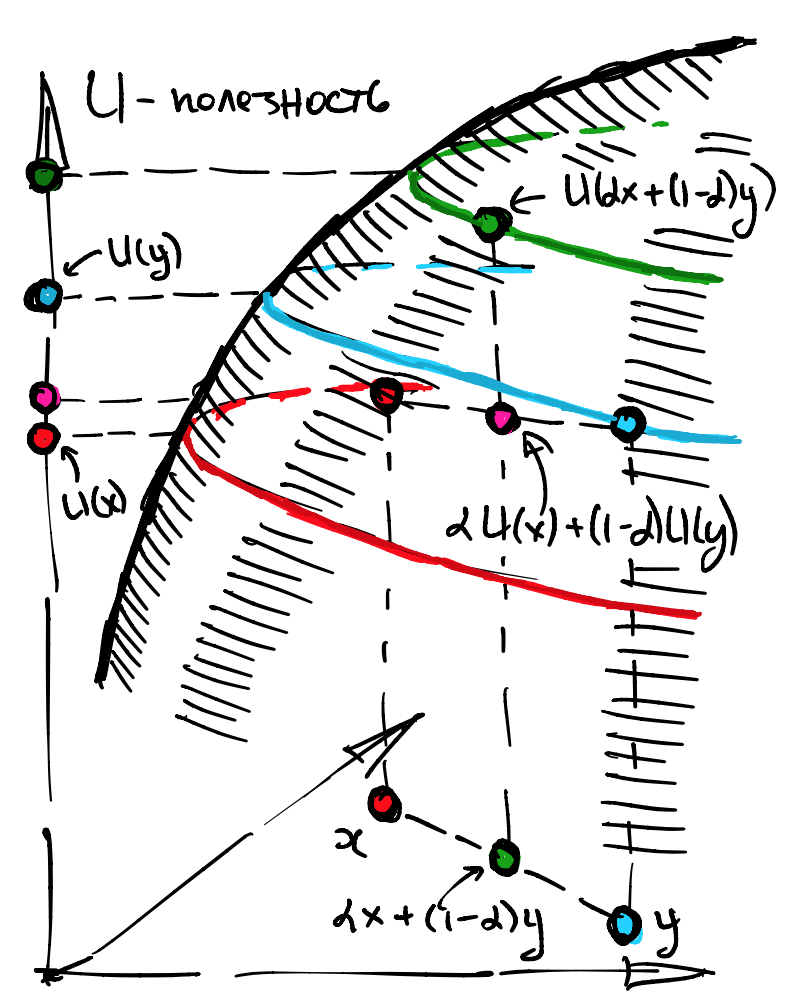 U - полезность
U(αx+(1-α)y)
U(y)
U(x)
αU(x)+(1-α)U(y)
x
αx+(1-α)y
y